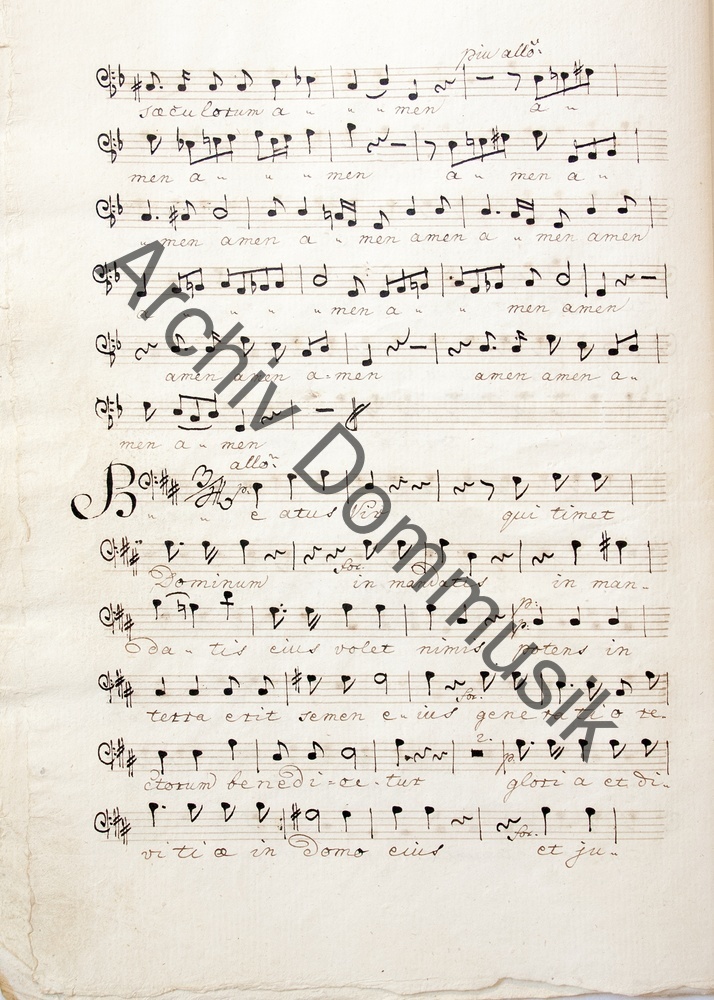 piu allo:
sæculorum a " " " men a "
men a " " " men a " men a "
" men amen a " men amen a " men amen
a " " " " men a " " men amen
amen amen a=men amen amen a "
men a " men
allo:
B " " e atus Vir qui timet
for.
Dominum in mandatis in man-
p:
p:
da - tis eius volet nimis potens in
for.
terra erit semen e - ius generatio re-
2. p.
ctorum benedi=ce-tur gloria et di-
for.
vitiæ in Domo eius et ju-
Archiv Dommusik